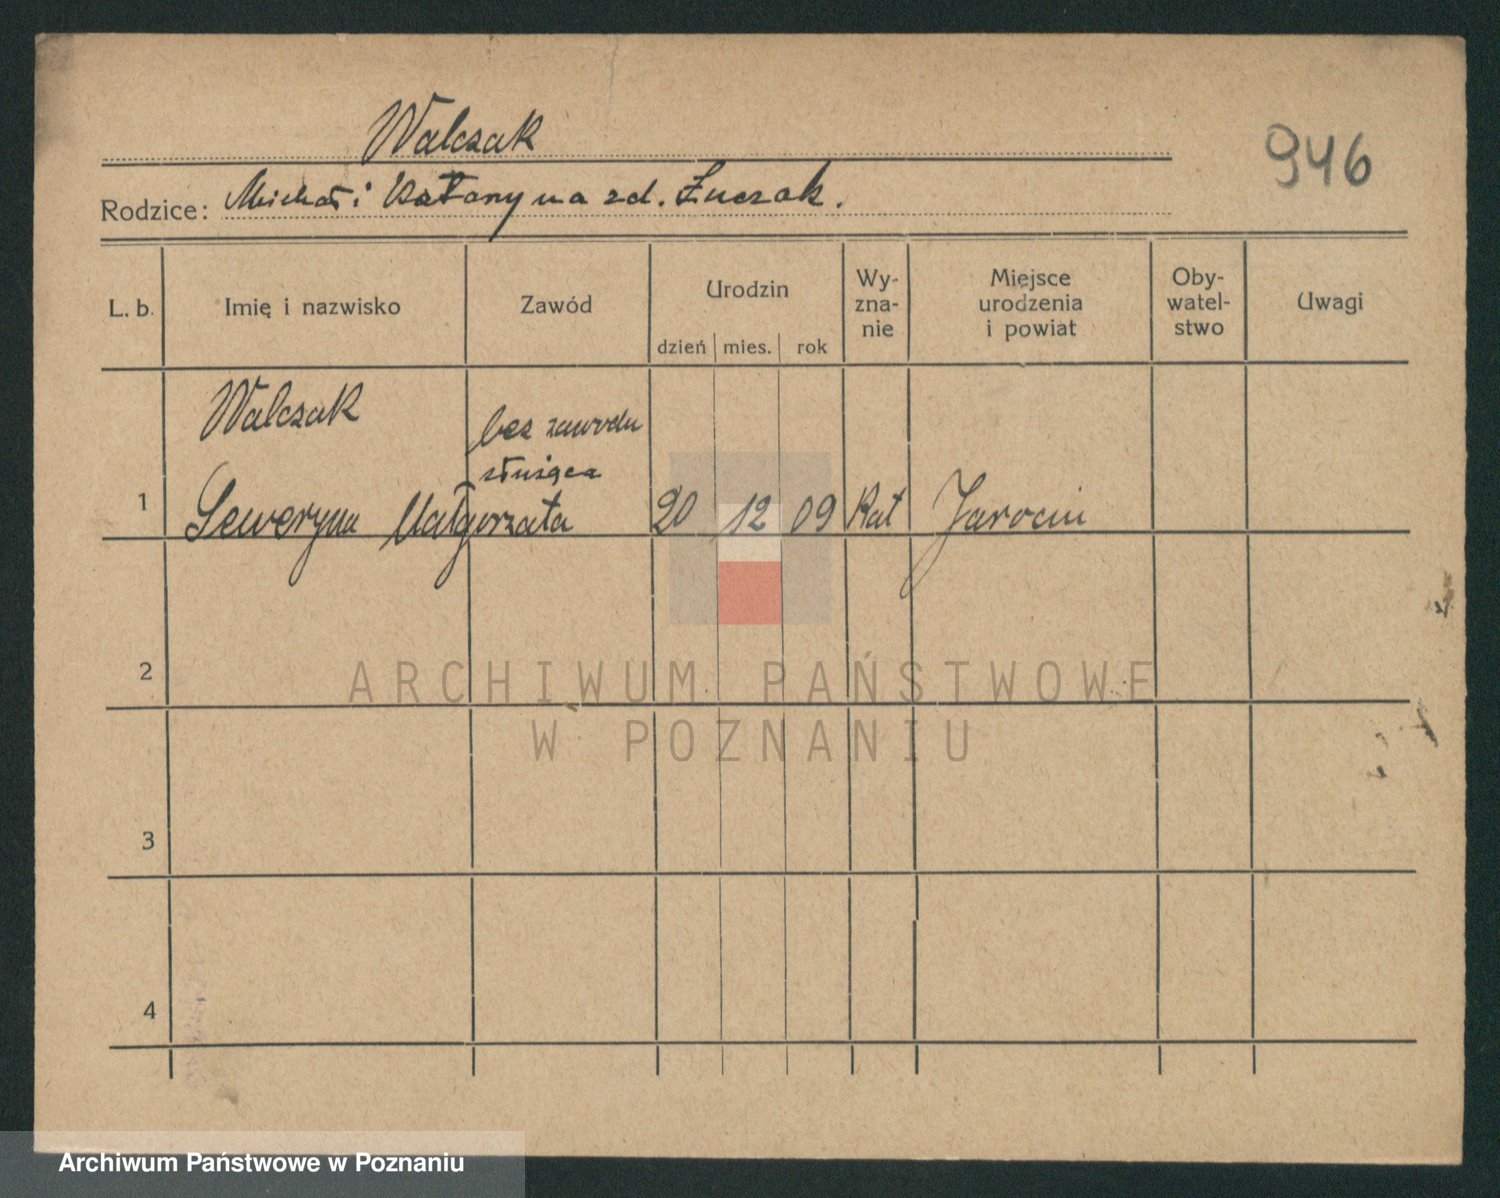 Walczak
946
Rodzice: Michał i Katarzyna zd. Łuczak.
L. b.
Imię i nazwisko
Zawód
Urodzin
dzień
mies.
rok
Wy-
zna-
nie
Miejsce
urodzenia
i powiat
Oby-
watel-
stwo
Uwagi
Walczak
bez zawodu
służąca
1
Seweryna Małgorzata
20
12
09
Kat
Jarocin
2
ARCHIWUM PAŃSTWOWE
W POZNANIU
3
4
Archiwum Państwowe w Poznaniu